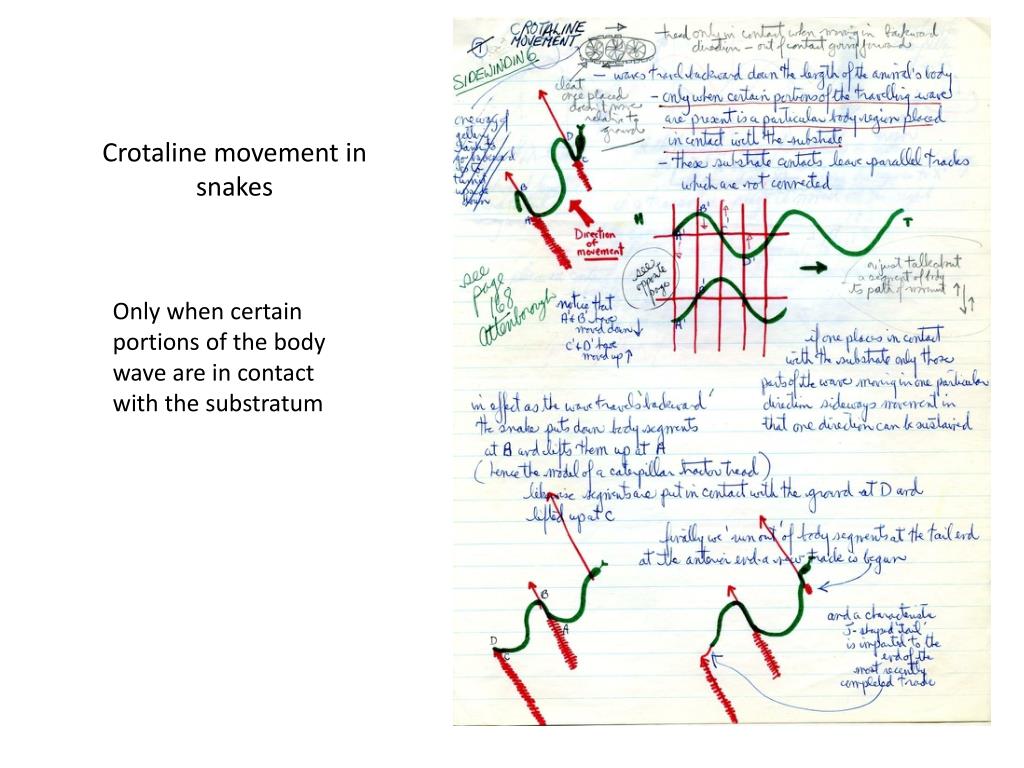 Crotaline movement in
snakes
Only when certain
portions of the body
wave are in contact
with the substratum
CROTALINE
MOVEMENT
SIDEWINDING
tread only in contact when moving in backward
direction – out of contact going forward
cleat
once placed
doesn't move
relative to
ground
– waves travel backward down the length of the animal's body
– only when certain portions of the travelling wave
are present is a particular body region placed
in contact with the substrate
– these substrate contacts leave parallel tracks
which are not connected
one way of
D
C
B
A
Direction
of
movement
H
A'
B'
C'
D'
T
B'
A'
see
opposite
page
or just talk about
a segment of body
see
page
168
Attenborough
notice that
A' & B' have
moved down ↓
C' & D' have
moved up ↑
if one places in contact
with the substrate only those
parts of the wave moving in one particular
direction sideways movement in
that one direction can be sustained
in effect as the wave travels 'backward'
the snake puts down body segments
at B and lifts them up at A
(hence the model of a caterpillar tractor tread)
likewise segments are put in contact with the ground at D and
lifted up at C
finally we 'run out' of body segments at the tail end
at the anterior end a new track is begun
B
A
D
C
and a characteristic
J-shaped 'tail'
is imparted to the
end of the
most recently
completed track